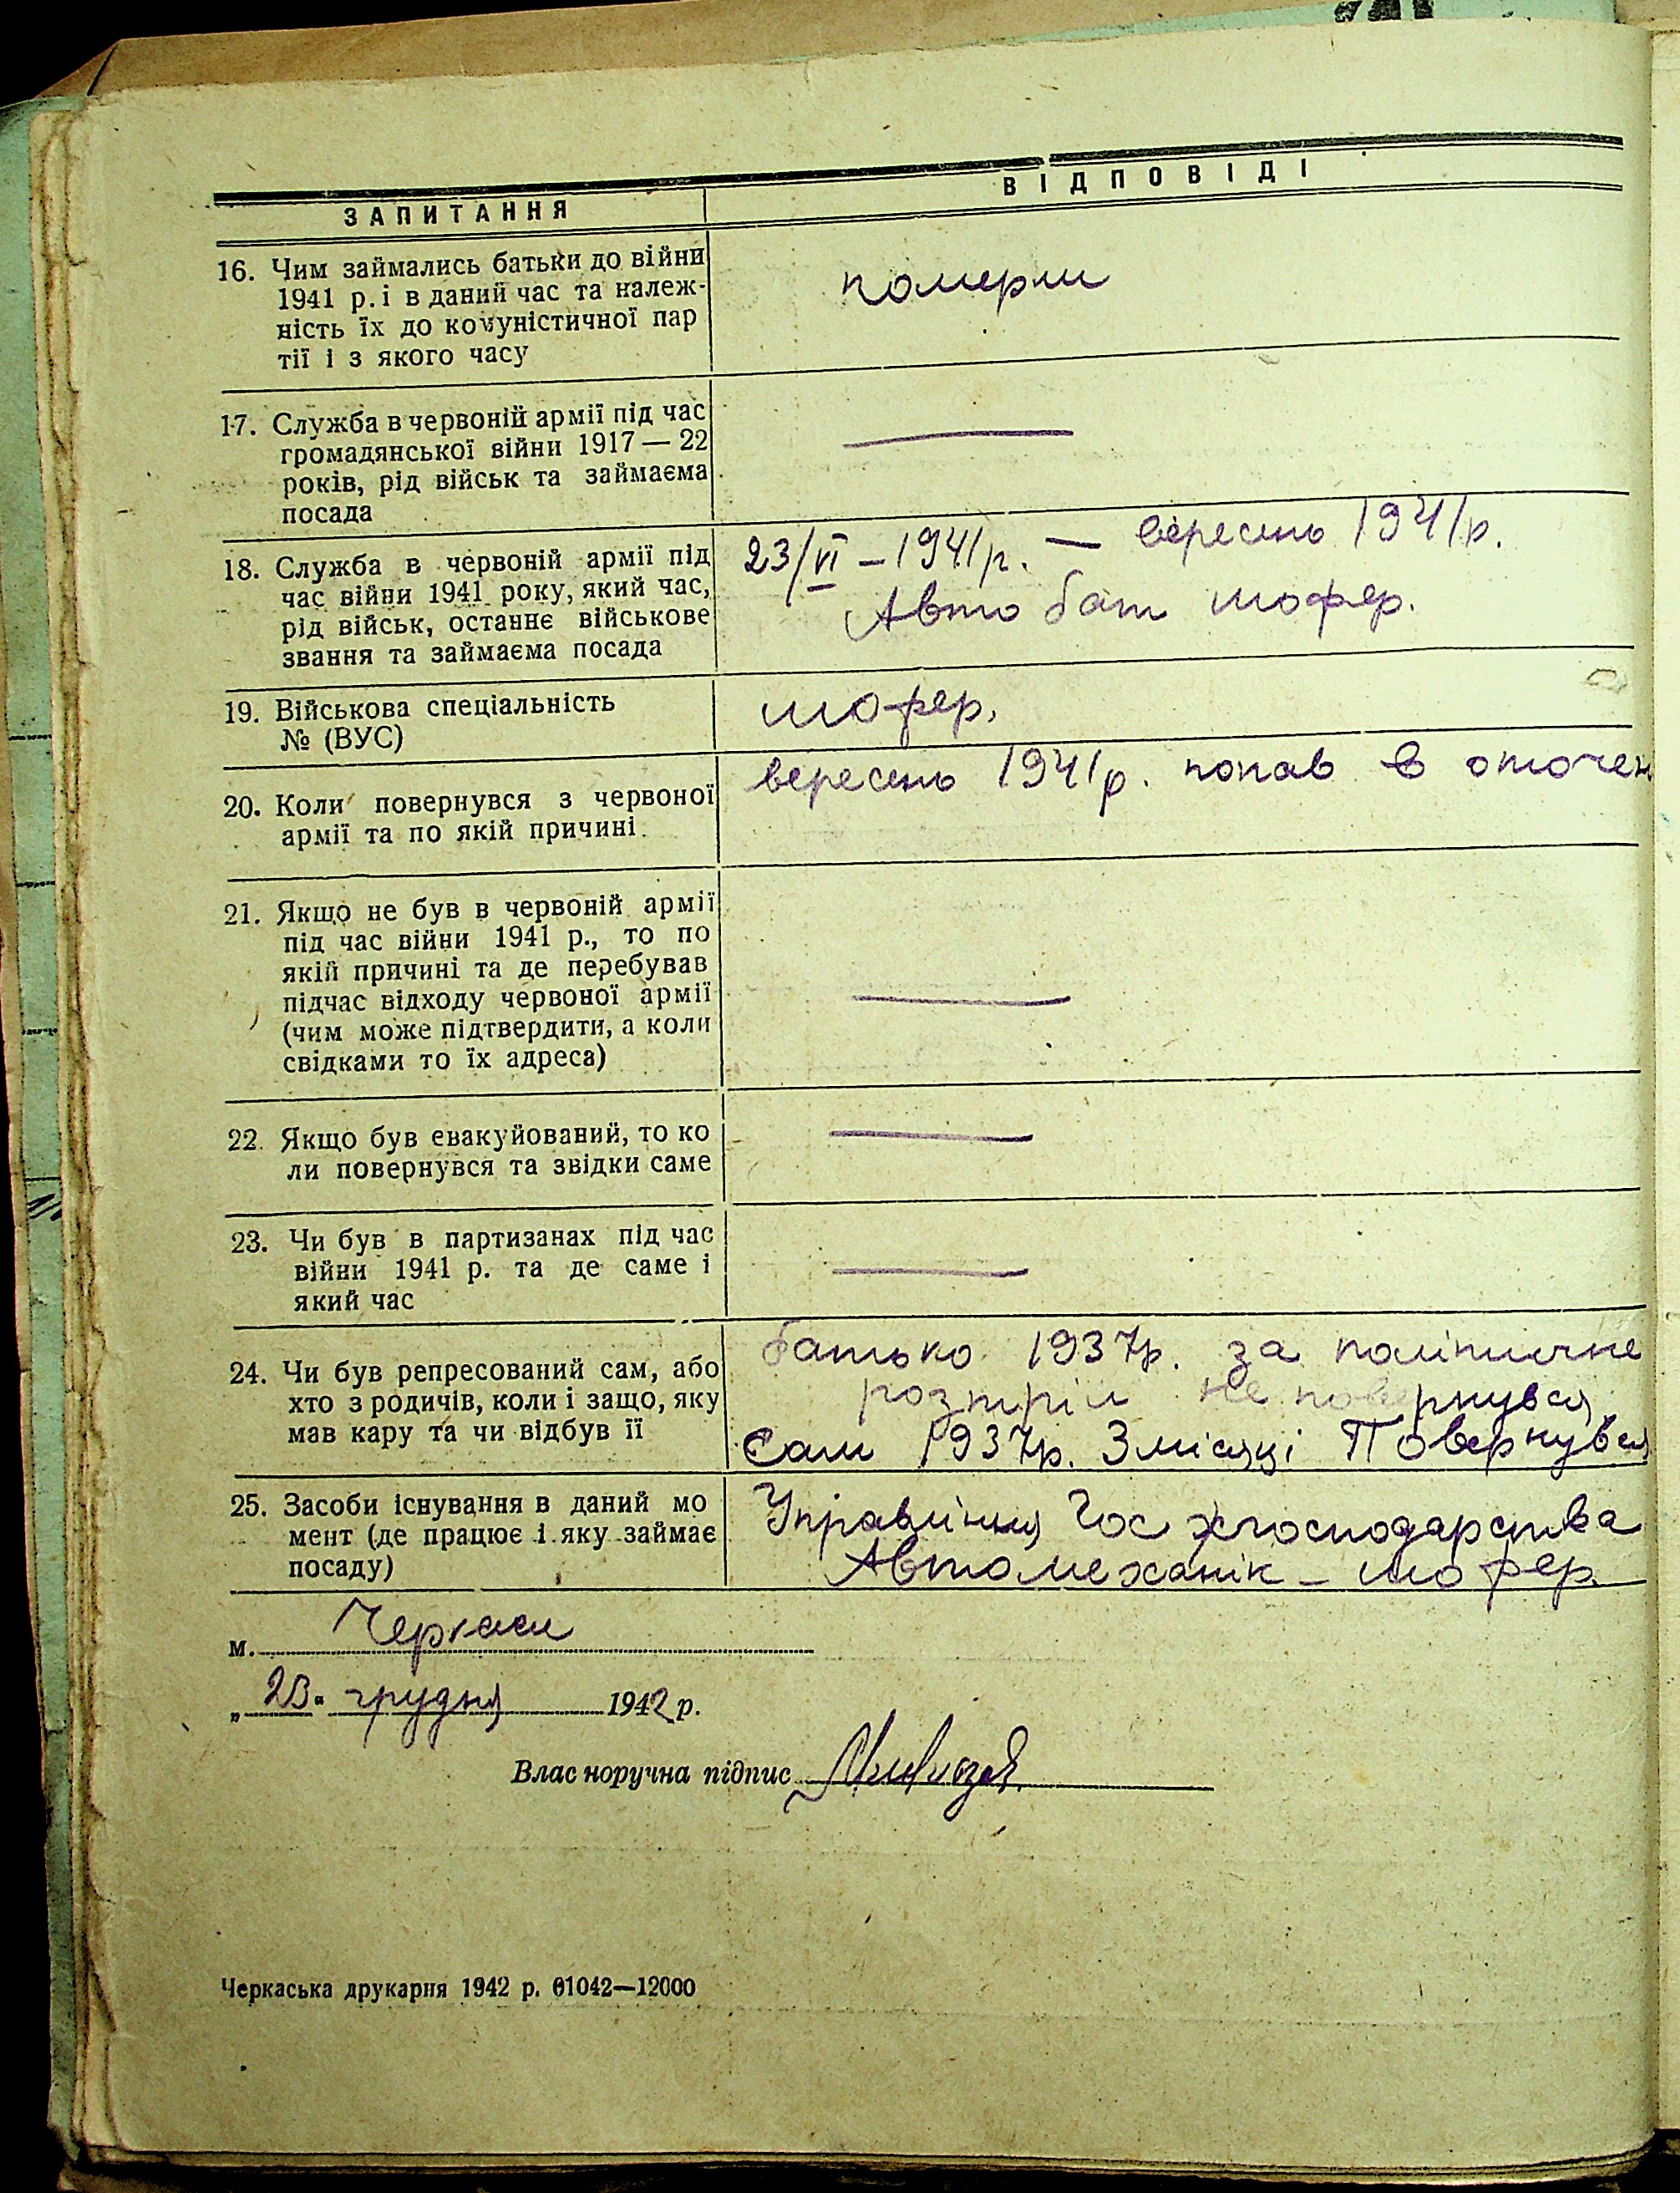 ЗАПИТАННЯ
ВІДПОВІДІ
16. Чим займались батьки до війни
1941 р. і в даний час та належ-
ність їх до комуністичної пар
тії і з якого часу
померли
17. Служба в червоній армії під час
громадянської війни 1917 — 22
років, рід військ та займаєма
посада
18. Служба в червоній армії під
час війни 1941 року, який час,
рід військ, останнє військове
звання та займаєма посада
23/VI – 1941р. — вересень 1941р.
Авто бат шофер.
19. Військова спеціальність
№ (ВУС)
шофер.
20. Коли повернувся з червоної
армії та по якій причині
вересень 1941р. попав в оточен
21. Якщо не був в червоній армії
під час війни 1941 р., то по
якій причині та де перебував
підчас відходу червоної армії
(чим може підтвердити, а коли
свідками то їх адреса)
22. Якщо був евакуйований, то ко
ли повернувся та звідки саме
23. Чи був в партизанах під час
війни 1941 р. та де саме і
який час
24. Чи був репресований сам, або
хто з родичів, коли і защо, яку
мав кару та чи відбув її
батько 1937р. за політичне
розтріл не повернувся
Сам 1937р. 3 місяці Повернувся
25. Засоби існування в даний мо
мент (де працює і яку займає
посаду)
Управління Гос господарства
Автомеханік – шофер.
м. Черкаси
„23" грудня 1942 р.
Влас норучна підпис
Черкаська друкарня 1942 р. 01042—12000